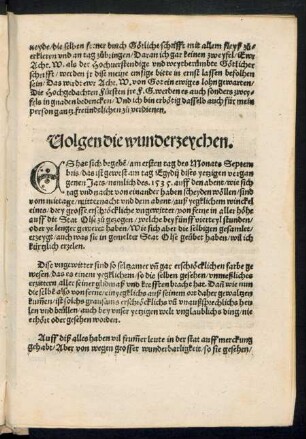 neyde/ die selben ferner durch Götliche schrifft mit allem fleyß zů er=
klerren vnd an tag zůbringen/ Daran ich gar keinen zweyfel/ Ewr
Acht. W. als der Hochuerstendige vnd weytberümbte Götlicher
schrifft/ werden jr diß meine einsige biete in ernst lassen befolhen
sein/ Das würdt ewr Acht. W. von Got ein ewiges lohn gewarten/
Die Hochgedachten Fürsten jr F. G. werden es auch sonders zwey=
fels in gnaden bedencken/ Vnd ich bin erbötig dasselb auch für mein
person gantz freündtlichen zů verdienen.
Volgen die wunderzeychen.
ES hat sich begebe/ am ersten tag des Monats Septem
bris/ das ist gewest am tag Egydij dises yetzigen vergan
genen Jars/ namlich des. 1535. auff den abent/ wie sich
tag vnd nacht von einander haben scheyden wöllen/ sind
vom nidtage/ mitternacht vnd dem abent/ auß yetzlichem winckel
eins/ dry grosse erschröckliche vngewitter/ von ferre in aller höhe
auff die Stat Olse zů gezogen/ welche bey fünff vierteyl stunden/
oder ye lenger geweret haben/ Wie sich aber die selbigen gesamlet/
erzeygt/ auch was sie in gemelter Stat Olse geübet haben/ will ich
kürtzlich erzelen.
Dise vngewitter sind so seltzamer vñ gar erschröcklichen farbe ge
wesen/ das es einem yegklichem/ so die selben gesehen/ vnmeßliches
erzittern aller seiner glidmaß vnd kresten bracht hat. Dañ wie nun
die selbē also vonferne/ ein yegklichs auff seinem ort daher gewaltzen
kumen/ ist solichs grausams erschröcklichs vñ vnaußsprechlichs heu
len vnd beüllen/ auch bey vnser yetzigen welt vnglaublichs ding/ nie
erhört oder gesehen worden.
Auff diß alles haben vil frumer leute in der stat auff merckung
gehabt/ Aber von wegen grosser wunderbarligkeit/ so sie gesehen/